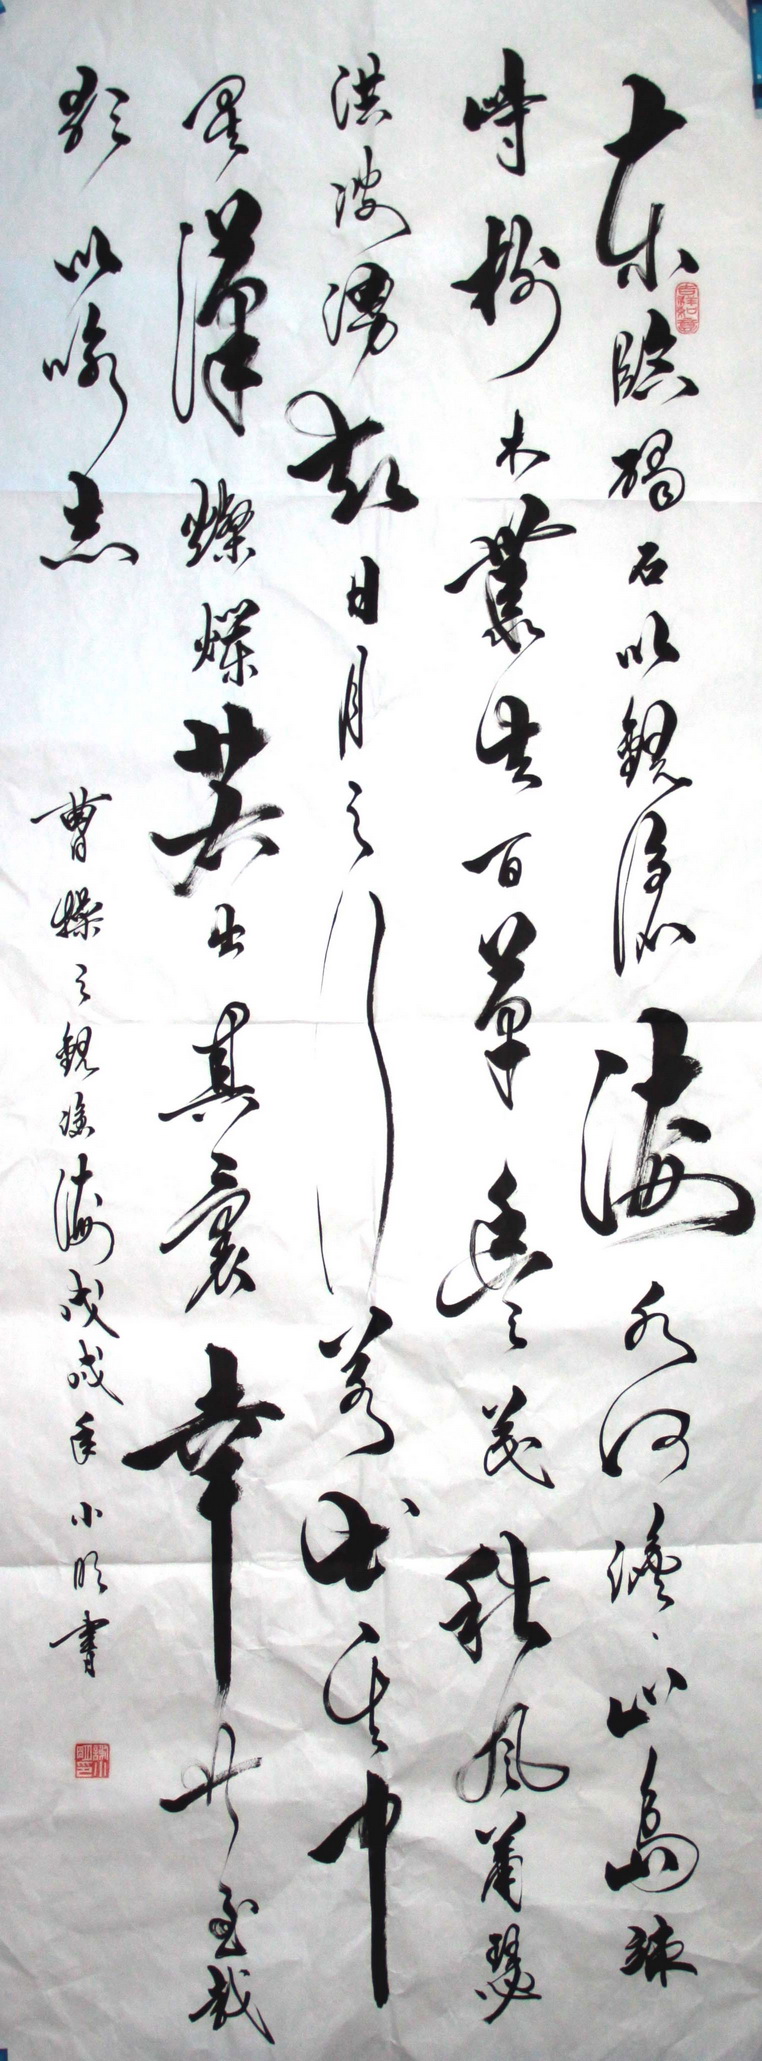 东临碣石以觀滄海水何澹〻山島竦
峙樹木叢生百草豊之茂秋風蕭瑟
洪波湧起日月之行若出其中
星漢燦爛若出其裏幸甚至哉
歌以咏志
曹操之觀滄海戊戌年小明書
吉祥如意
謝小明印